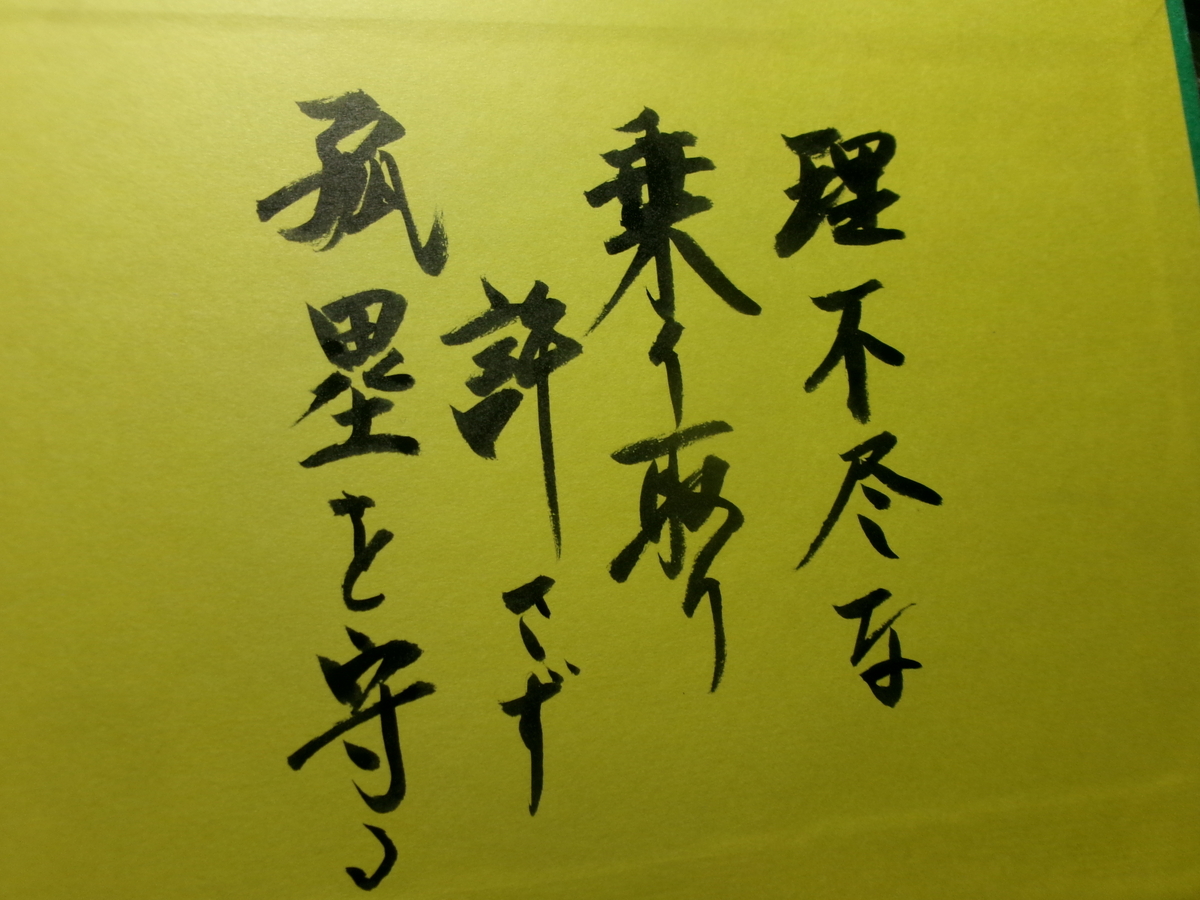 理不尽な
乗り取り
許さず
孤塁を守る